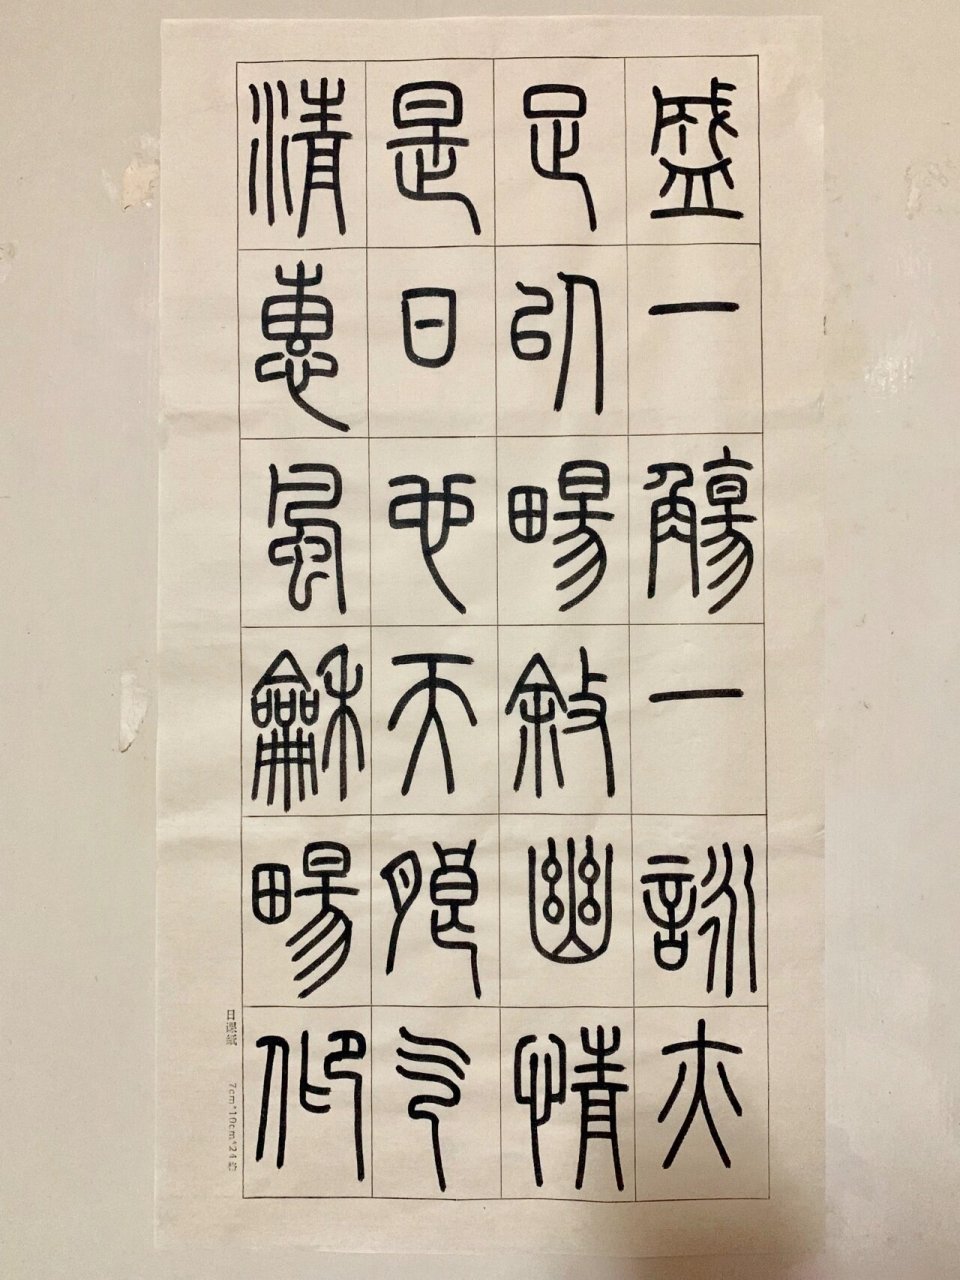 盛一觴一詠亦
足㠯暢敘幽情
是日也天朗气
清惠風龢暢仰
7cm*10cm*24